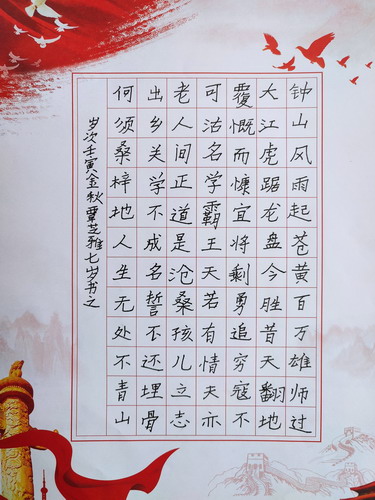 钟山风雨起苍黄百万雄师过
大江虎踞龙盘今胜昔天翻地
覆慨而慷宜将剩勇追穷寇不
可沽名学霸王天若有情夫亦
老人间正道是沧桑孩儿立志
出乡关学不成名誓不还埋骨
何须桑梓地人生无处不青山
岁次壬寅金秋覃芝雅七岁书之